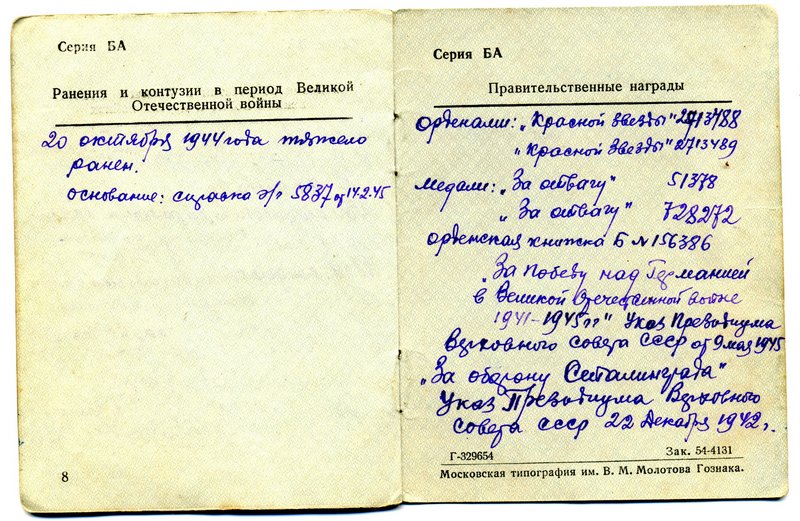 Серия БА
Ранения и контузии в период Великой
Отечественной войны
20 октября 1944 года тяжело
ранен.
основание: справка э/г 5837 от 14.2.45
8
Серия БА
Правительственные награды
орденами: „Красной звезды" 2713788
„Красной Звезды" 2713489
медали: „За отвагу" 51378
„За отвагу" 728272
орденская книжка Б № 156386
„За победу над Германией
в Великой Отечественной войне
1941-1945 гг" Указ Президиума
Верховного совета СССР от 9 мая 1945
„За оборону Сталинграда"
Указ Президиума Верховного
совета СССР 22 декабря 1942 г.
Г-329654 Зак. 54-4131
Московская типография им. В. М. Молотова Гознака.